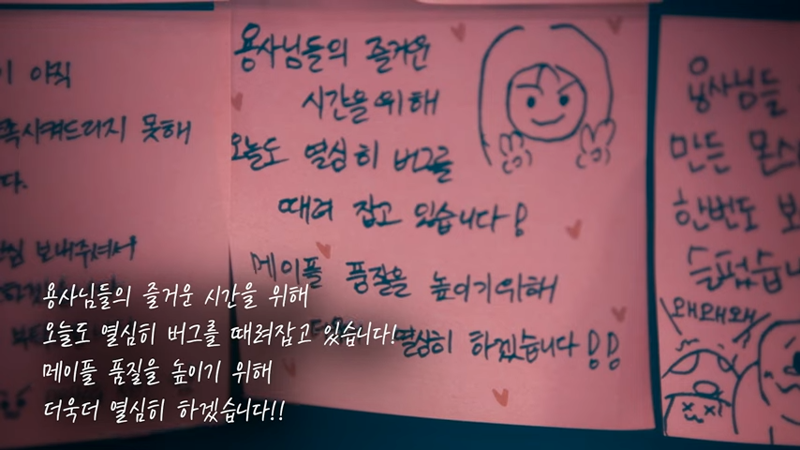 아직
족시켜드리지 못해
다.
보내주셔서
용사님들의 즐거운
시간을위해
오늘도 열심히 버그를
때려 잡고 있습니다!
메이플 품질을 높이기위해
열심히 하겠습니다!!
용사님들
만든 몬스
한번도 보
슬펐습니
왜왜왜
용사님들의 즐거운 시간을 위해
오늘도 열심히 버그를 때려잡고 있습니다!
메이플 품질을 높이기 위해
더욱더 열심히 하겠습니다!!